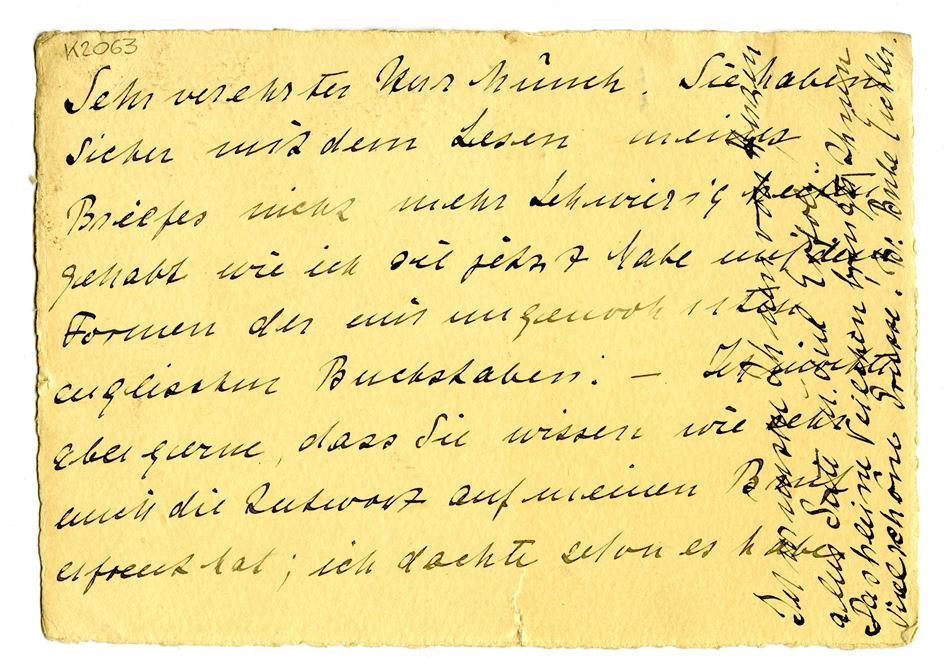 K2063
Sehr verehrter Herr Münch. Sie haben
sicher mit dem Lesen meines
Briefes nicht mehr Schwierigkeiten
gehabt wie ich sie jetzt habe mit den
Formen der mir ungewohnten
englischen Buchstaben. – Ich möchte
aber gerne, dass Sie wissen wie sehr
mich die Antwort auf meinen Brief
erfreut hat; ich dachte schon es habe
Ich wünsche Ihnen von Herzen
alles Gute u. viel Erfolg.
Das kleine Veilchen bringt Ihnen
viele schöne Grüsse. Dr.